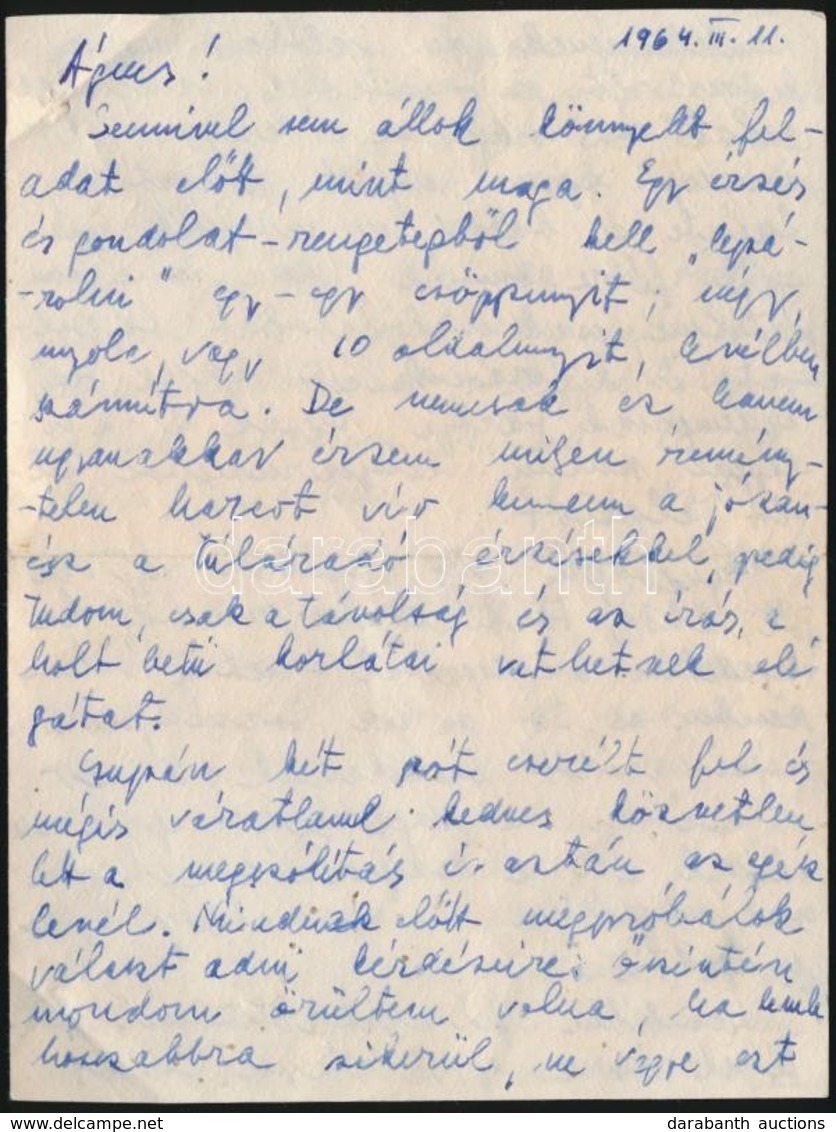 1964. III. 11.
Ágnes!
Semmivel sem állok könnyebb fel-
adat előtt, mint maga. Egy érzés
és gondolat-rengetegből kell „lepá-
-rolni" egy-egy csöppnyit, négy,
nyolc, vagy 10 oldalnyit, levélben
számítva. De nemcsak ez hanem
ugyanakkor érzem milyen remény-
-telen harcot vív bennem a józan-
ész a túláradó érzésekkel, pedig
tudom, csak a távolság és az írás, a
holt betű korlátai vethetnek elé
gátat.
Csupán két szót cserélt fel és
mégis váratlanul kedves közvetlen
lett a megszólítás és aztán az egész
levél. Mindenek előtt megpróbálok
választ adni kérdéseire: őszintén
mondom örültem volna, ha
hosszabbra sikerül, ne vegye ezt
darabanth
darabanth auctions